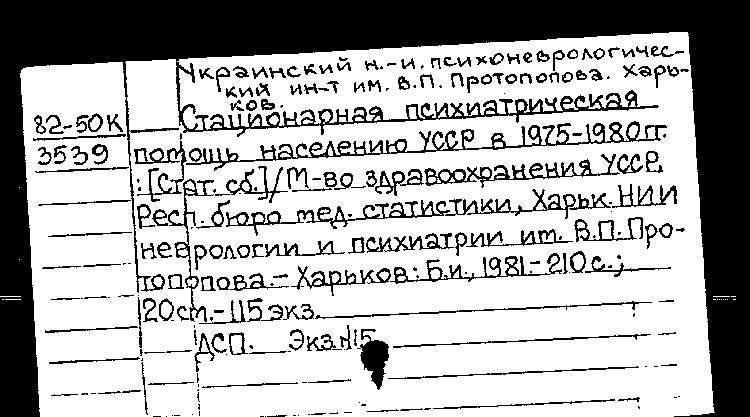 Украинский н.-и. психоневрологичес-
кий ин-т им. В.П. Протопопова. Харь-
ков.
82-50К Стационарная психиатрическая
3539 помощь населению УССР в 1975-1980гг.
: [Стат. сб.] / М-во здравоохранения УССР,
Респ. бюро мед. статистики, Харьк. НИИ
неврологии и психиатрии им. В.П. Про-
топопова. - Харьков: Б.и., 1981. - 210 с.;
20 см. - 115 экз.
ДСП. Экз. №15